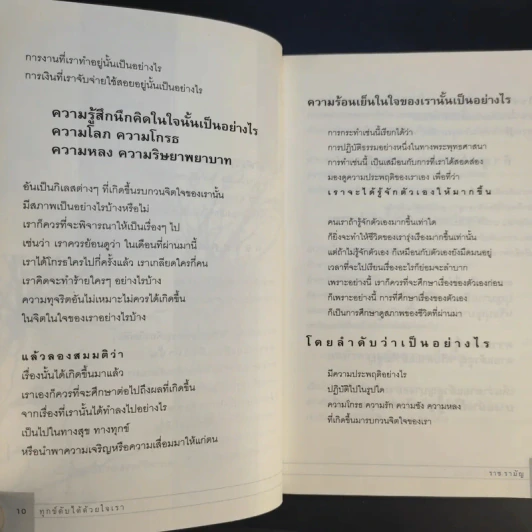 การงานที่เราทำอยู่นั้นเป็นอย่างไร
การเงินที่เราจับจ่ายใช้สอยอยู่นั้นเป็นอย่างไร
ความรู้สึกนึกคิดในใจนั้นเป็นอย่างไร
ความโลภ ความโกรธ
ความหลง ความริษยาพยาบาท
อันเป็นกิเลสต่างๆ ที่เกิดขึ้นรบกวนจิตใจของเรานั้น
มีสภาพเป็นอย่างไรบ้างหรือไม่
เราก็ควรที่จะพิจารณาให้เป็นเรื่องๆ ไป
เช่นว่า เราควรย้อนดูว่า ในเดือนที่ผ่านมานี้
เราได้โกรธใครไปกี่ครั้งแล้ว เราเกลียดใครกี่คน
เราคิดจะทำร้ายใครๆ อย่างไรบ้าง
ความทุจริตอันไม่เหมาะไม่ควรได้เกิดขึ้น
ในจิตในใจของเราอย่างไรบ้าง
แล้วลองสมมติว่า
เรื่องนั้นได้เกิดขึ้นมาแล้ว
เราเองก็ควรที่จะศึกษาต่อไปถึงผลที่เกิดขึ้น
จากเรื่องที่เรานั้นได้ทำลงไปอย่างไร
เป็นไปในทางสุข ทางทุกข์
หรือนำพาความเจริญหรือความเสื่อมมาให้แก่ตน
10 ทุกข์ดับได้ด้วยใจเรา
ความร้อนเย็นในใจของเรานั้นเป็นอย่างไร
การกระทำเช่นนี้เรียกได้ว่า
การปฏิบัติธรรมอย่างหนึ่งในทางพระพุทธศาสนา
การทำเช่นนี้ เป็นเสมือนกับการที่เราได้สอดส่อง
มองดูความประพฤติของเราเอง เพื่อที่ว่า
เราจะได้รู้จักตัวเองให้มากขึ้น
คนเราถ้ารู้จักตัวเองมากขึ้นเท่าใด
ก็ยิ่งจะทำให้ชีวิตของเรารุ่งเรืองมากขึ้นเท่านั้น
แต่ถ้าไม่รู้จักตัวเอง ก็เหมือนกับตัวเองยังมืดมนอยู่
เวลาที่จะไปเรียนรู้เรื่องอะไรก็ย่อมจะลำบาก
เพราะอย่างนี้ เราก็ควรที่จะศึกษาเรื่องของตัวเองก่อน
ก็เพราะอย่างนี้ การที่ศึกษาเรื่องของตัวเอง
ก็เป็นการศึกษาดูสภาพของชีวิตที่ผ่านมา
โดยลำดับว่าเป็นอย่างไร
มีความประพฤติอย่างไร
ปฏิบัติไปในรูปใด
ความโกรธ ความรัก ความชัง ความหลง
ที่เกิดขึ้นมารบกวนจิตใจของเรา
ราช รามัญ